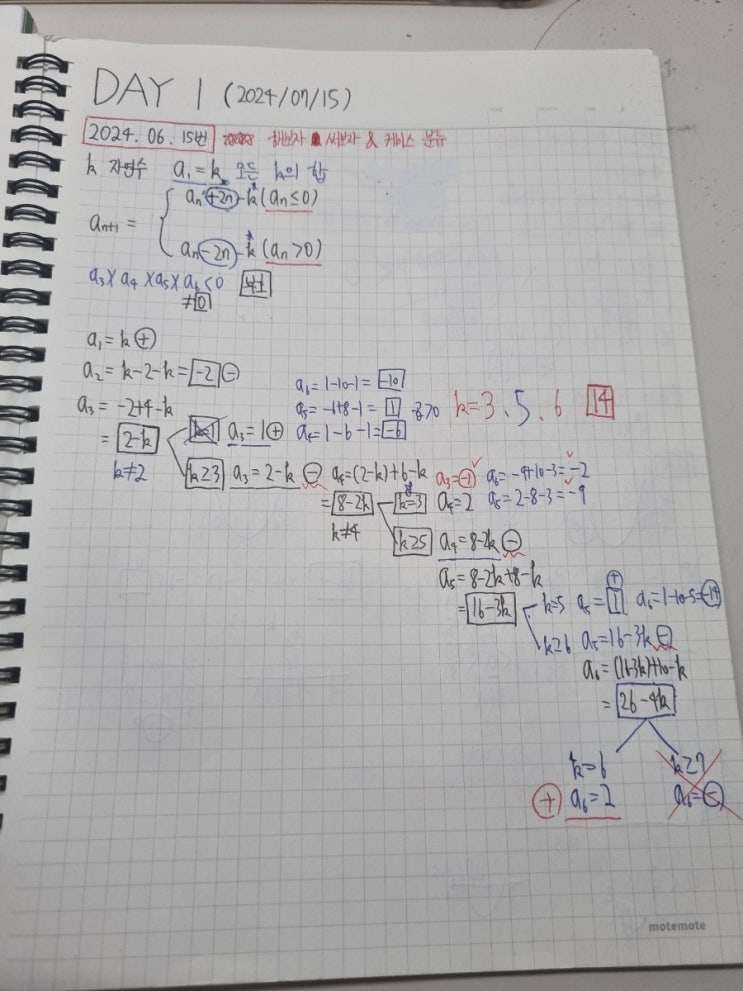 DAY 1 (2024/07/15)
2024. 06. 15번 해보자 써보자 & 케이스 분류
k 자연수 a₁=k 모든 k의 합
aₙ₊₁ =
aₙ+2n-k (aₙ≤0)
aₙ-2n-k (aₙ>0)
a₃×a₄×a₅×a₆<0
≠0
a₁=k ⊕
a₂=k-2-k=-2 ⊖
a₃=-2+4-k
=2-k
k≠2
k=1 a₃=1 ⊕
a₆=1-10-1=-10
a₅=-6+8-1=1 >0
a₄=1-6-1=-6
k=3, 5, 6 14
k≥3 a₃=2-k ⊖ a₄=(2-k)+6-k
=8-2k
k≠4
k=3 a₄=2
a₃=-1 a₆=-9+10-3=-2
a₅=2-8-3=-9
k≥5 a₄=8-2k ⊖
a₅=8-2k+8-k
=16-3k
k=5 a₅=1 ⊕ a₆=1-10-5=-14
k≥6 a₅=16-3k ⊖
a₆=(16-3k)+10-k
=26-4k
k=6 k≥7
⊕ a₆=2 a₆=⊖
motemote